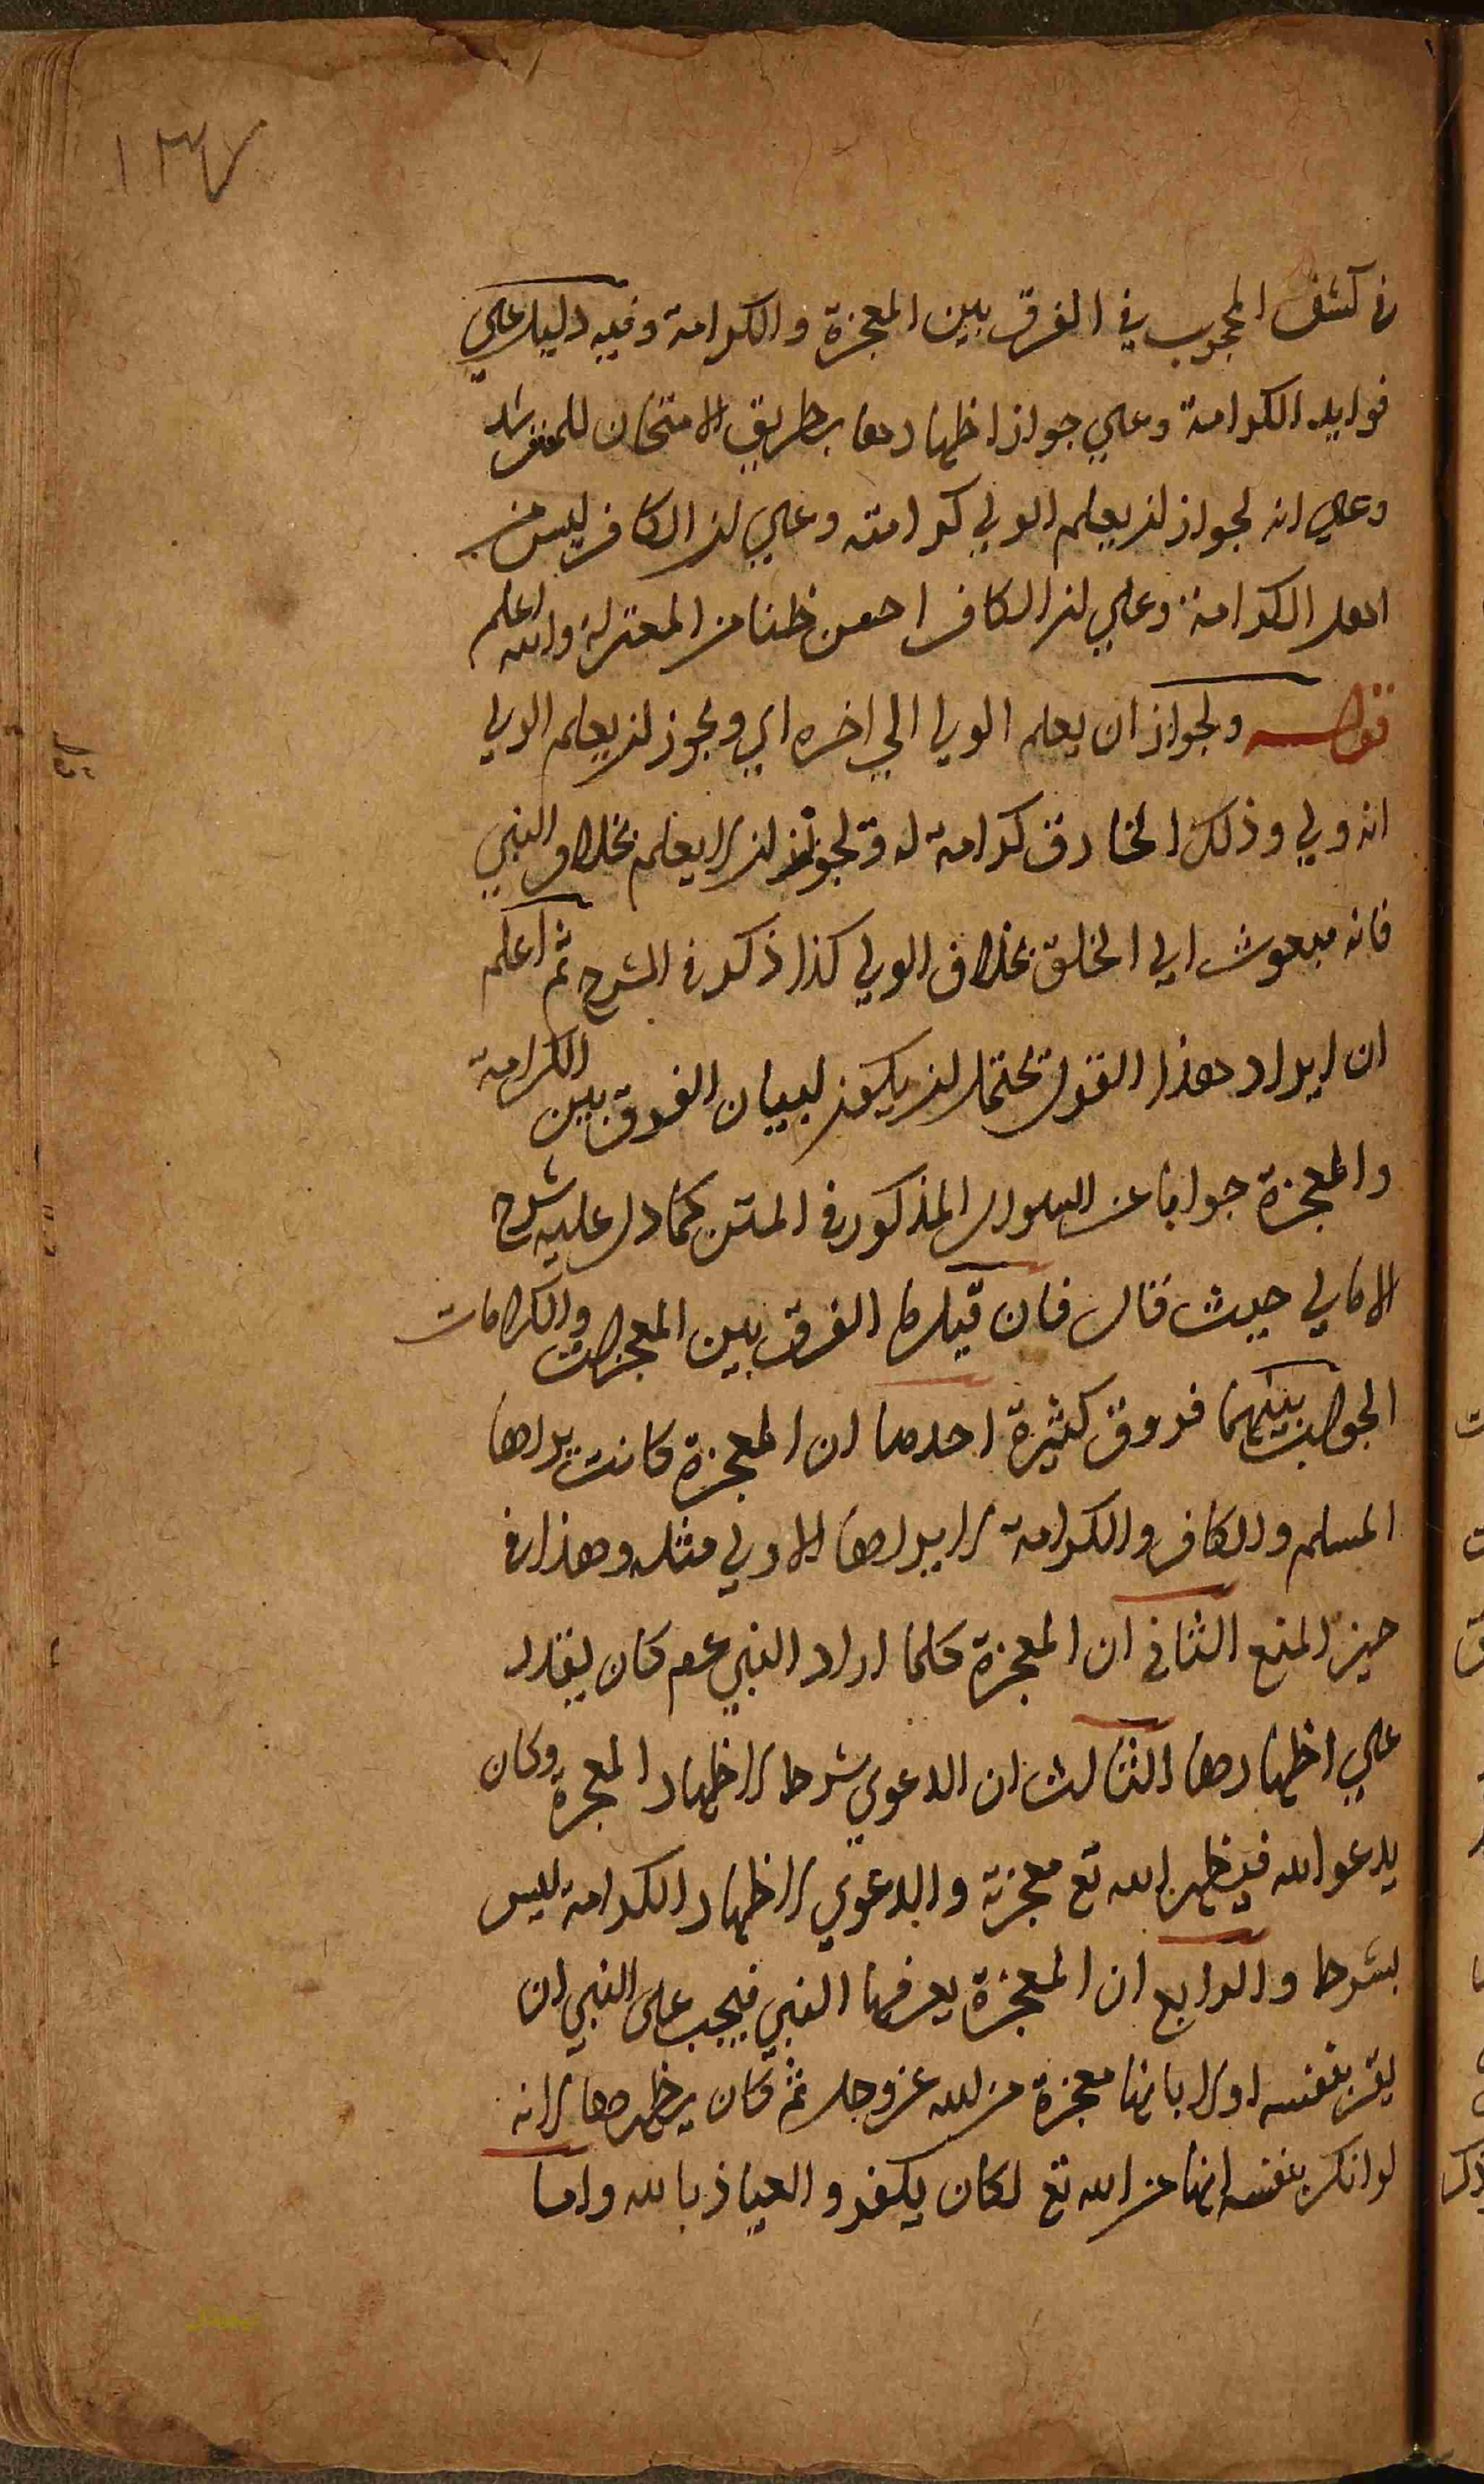 ١٣٧
في كشف المحجوب في الفرق بين المعجزة والكرامة وفيه دليل علي
فوايد الكرامة وعلي جواز اظهارها بطريق الامتحان للمسترشد
وعلي انه لجواز ان يعلم الولي كرامته وعلي ان الكافر ليس من
اهل الكرامة وعلي ان الكافر احسن ظنا من المعتزلة والله اعلم
قوله ولجواز ان يعلم الولي الي اخره اي ويجوز ان يعلم الولي
انه ولي وذلك الخارق كرامة له ويجوز ان لا يعلم بخلاف النبي
فانه مبعوث الي الخلق بخلاف الولي كذا ذكر في الشرح ثم اعلم
ان ايراد هذا القول يحتمل ان يكون لبيان الفرق بين الكرامة
والمعجزة جوابا عن السوال المذكور في المتن كما دل عليه شرح
الامالي حيث قال فان قيل ما الفرق بين المعجزات والكرامات
الجواب بينهما فروق كثيرة احدها ان المعجزة كانت يراها
المسلم والكافر والكرامة لا يراها الا ولي مثله وهذا في
حيز المنع الثاني ان المعجزة كلما اراد النبي عم كان يقدر
علي اظهارها الثالث ان الدعوي شرط لاظهار المعجزة وكان
يدعو الله فيظهر الله تع معجزته والدعوي لاظهار الكرامة ليس
بشرط والرابع ان المعجزة يعرفها النبي فيجب على النبي ان
يقر بنفسه اولا بانها معجزة من الله عز وجل ثم كان يظهرها لانه
لو انكر بنفسه انها من الله تع لكان يكفر والعياذ بالله واما